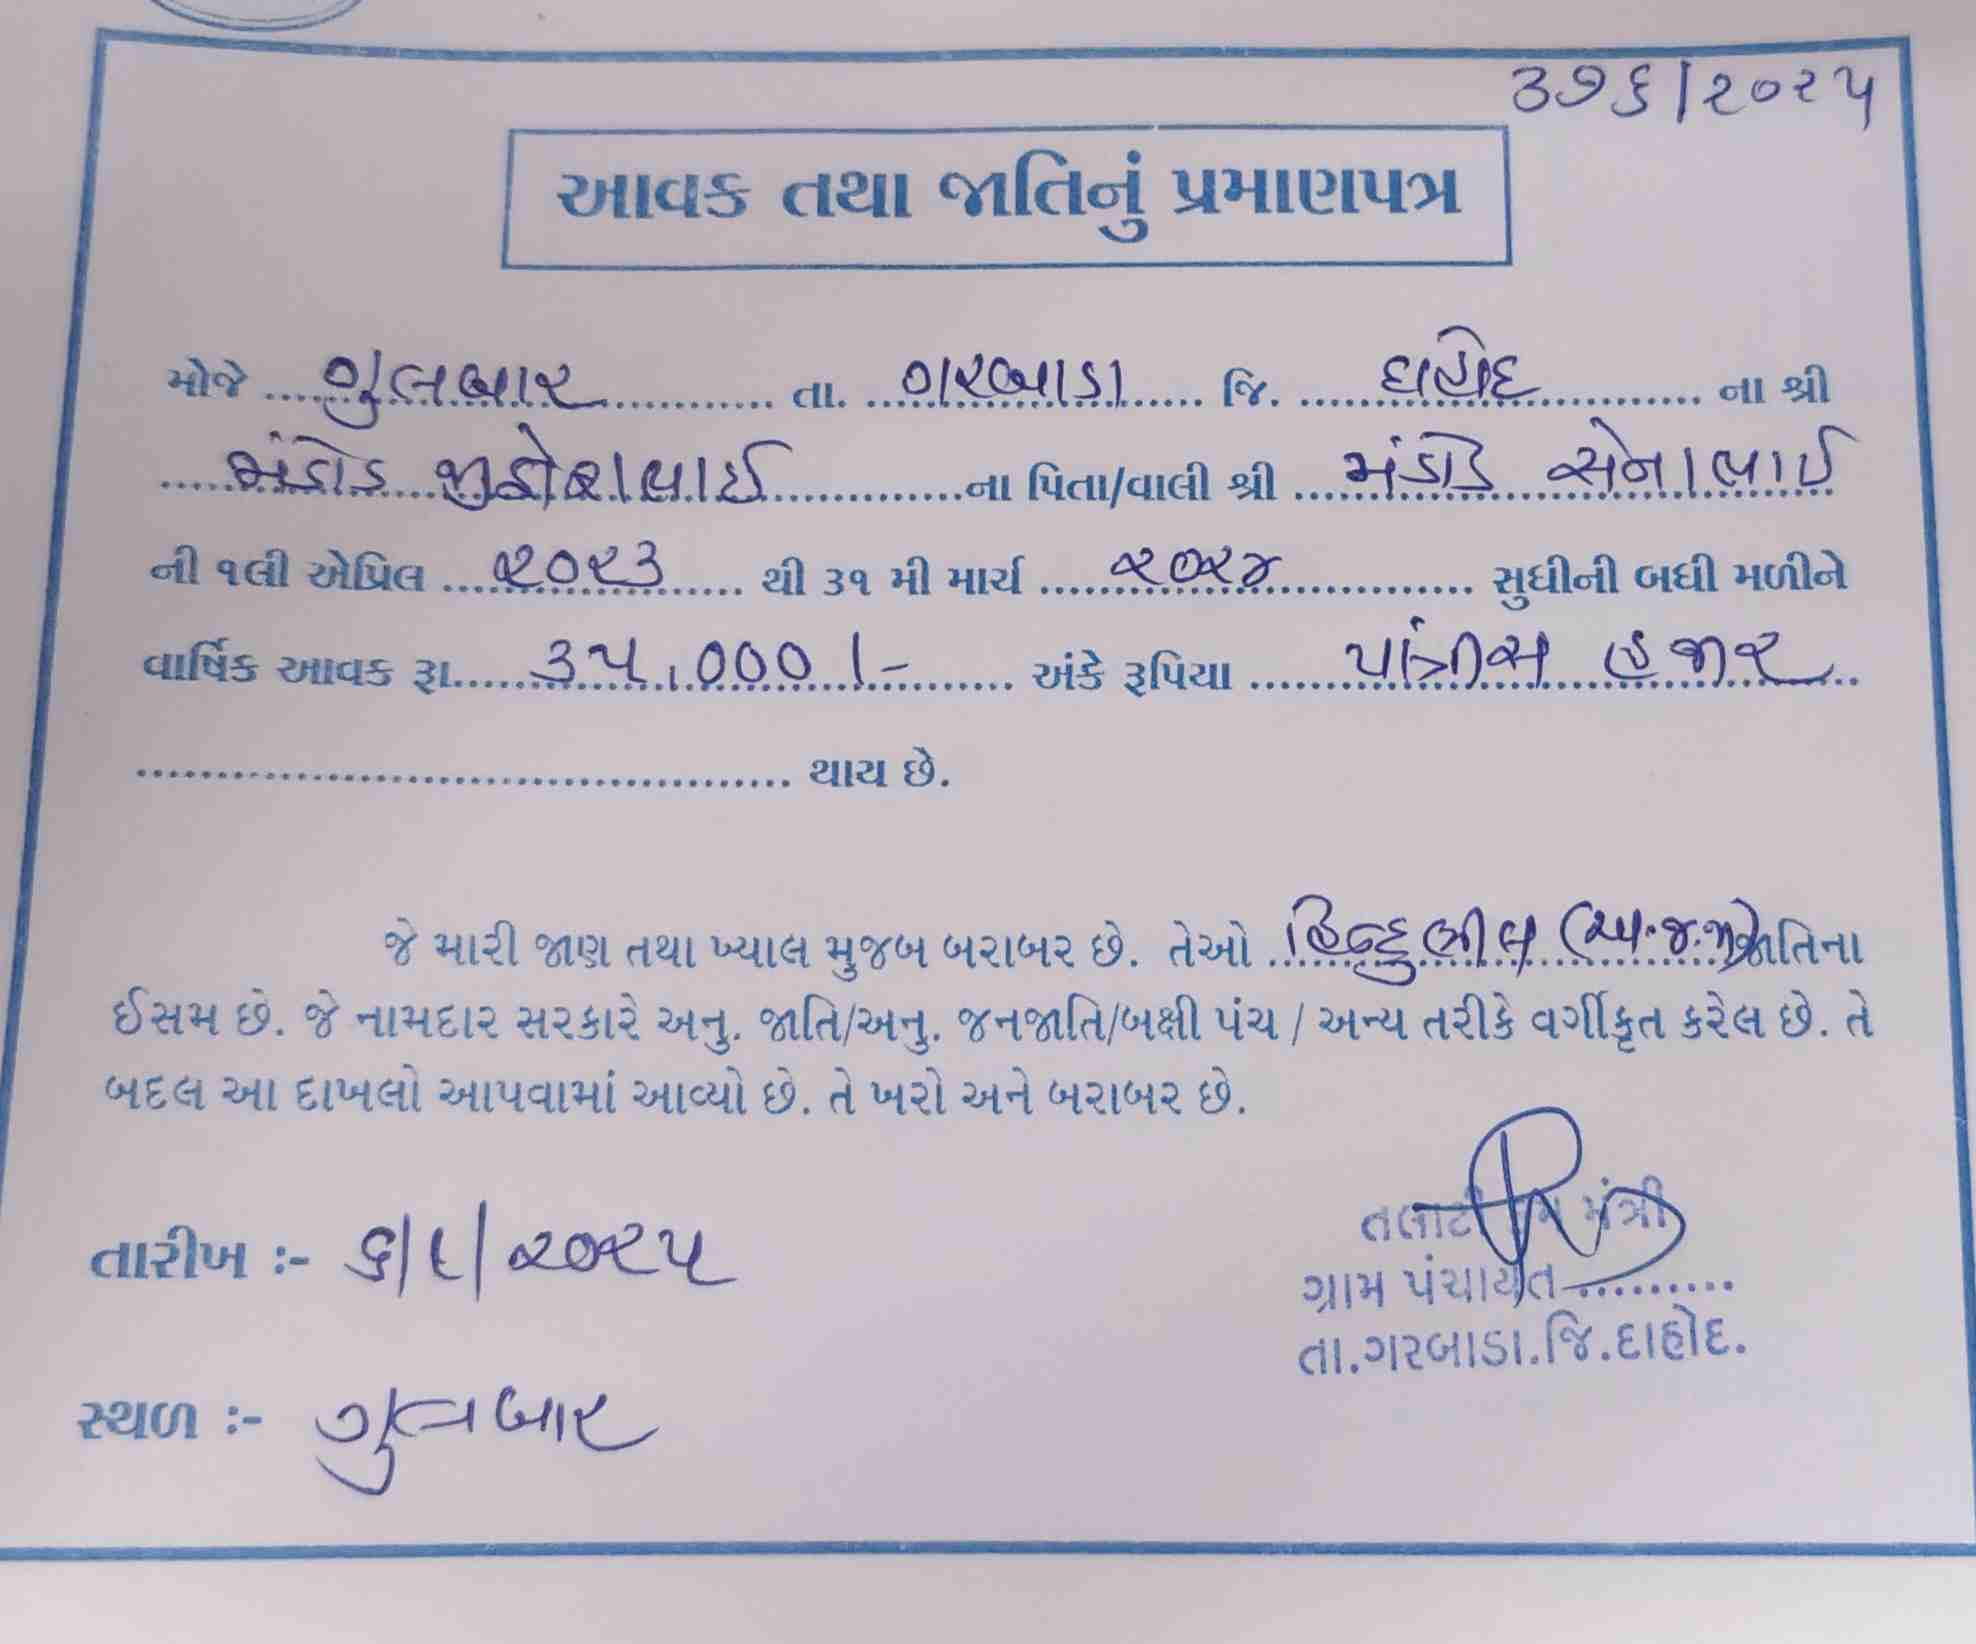 ૩૭૬/૨૦૨૫
આવક તથા જાતિનું પ્રમાણપત્ર
મોજે ગુલબાર તા. ગરબાડા જિ. દાહોદ ના શ્રી
મંડોડ ના પિતા/વાલી શ્રી મંડોડ સેનાભાઈ
ની ૧લી એપ્રિલ ૨૦૨૩ થી ૩૧ મી માર્ચ ૨૦૨૪ સુધીની બધી મળીને
વાર્ષિક આવક રૂા. ૩૫,૦૦૦/- અંકે રૂપિયા પાંત્રીસ હજાર
થાય છે.
જે મારી જાણ તથા ખ્યાલ મુજબ બરાબર છે. તેઓ હિન્દુ ભીલ (અ.જ.જા) જાતિના
ઈસમ છે. જે નામદાર સરકારે અનુ. જાતિ/અનુ. જનજાતિ/બક્ષી પંચ / અન્ય તરીકે વર્ગીકૃત કરેલ છે. તે
બદલ આ દાખલો આપવામાં આવ્યો છે. તે ખરો અને બરાબર છે.
તલાટી કમ મંત્રી
તારીખ :- ૬/૧/૨૦૨૫
ગ્રામ પંચાયત
તા.ગરબાડા.જિ.દાહોદ.
સ્થળ :- ગુલબાર